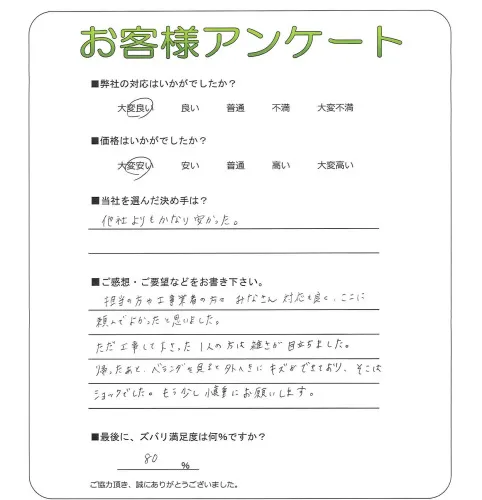 お客様アンケート
■弊社の対応はいかがでしたか？
大変良い 良い 普通 不満 大変不満
■価格はいかがでしたか？
大変安い 安い 普通 高い 大変高い
■当社を選んだ決め手は？
他社よりもかなり安かった。
■ご感想・ご要望などをお書き下さい。
担当の方や工事業者の方も みなさん 対応も良く、ここに
頼んでよかったと思いました。
ただ工事して下さった 1人の方は 雑さが 目立ちました。
帰ったあと、ベランダを見ると 外へきに キズも できており、そこは
ショックでした。もう少し 慎重に お願いします。
■最後に、ズバリ満足度は何％ですか？
80 ％
ご協力頂き、誠にありがとうございました。